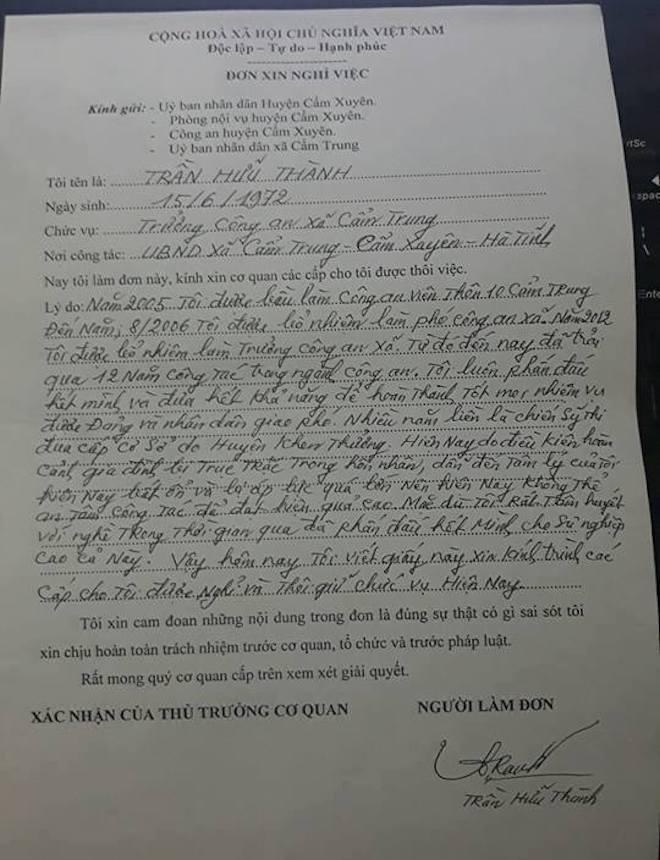 CỘNG HOÀ XÃ HỘI CHỦ NGHĨA VIỆT NAM
Độc lập – Tự do – Hạnh phúc
ĐƠN XIN NGHỈ VIỆC
Kính gửi: - Uỷ ban nhân dân Huyện Cẩm Xuyên.
- Phòng nội vụ huyện Cẩm Xuyên.
- Công an huyện Cẩm Xuyên.
- Uỷ ban nhân dân xã Cẩm Trung
Tôi tên là: TRẦN HỮU THÀNH
Ngày sinh: 15/6/1972
Chức vụ: Trưởng Công an xã Cẩm Trung
Nơi công tác: UBND xã Cẩm Trung - Cẩm Xuyên - Hà Tĩnh
Nay tôi làm đơn này, kính xin cơ quan các cấp cho tôi được thôi việc.
Lý do: Năm 2005 Tôi được bầu làm Công an viên Thôn 10 Cẩm Trung
Đến Năm; 8/2006 Tôi được bổ nhiệm làm phó công an xã. Năm 2012
Tôi được bổ nhiệm làm Trưởng công an xã. Từ đó đến nay đã trải
qua 12 Năm công tác trong ngành công an. Tôi luôn phấn đấu
hết mình và đưa hết khả năng để hoàn thành tốt mọi nhiệm vụ
được Đảng và nhân dân giao phó. Nhiều năm liền là chiến sỹ thi
đua cấp cơ sở do Huyện khen thưởng. Hiện Nay do điều kiện hoàn
cảnh gia đình bị trục trặc trong hôn nhân, dẫn đến tâm lý của tôi
hiện Nay bất ổn và bị áp lực quá lớn Nên hiện Nay không thể
an tâm công tác để đạt hiệu quả cao Mặc dù Tôi Rất Tâm huyết
với nghề Trong Thời gian qua đã phấn đấu hết Mình cho sự nghiệp
cao cả Này. Vậy hôm nay Tôi viết giấy này xin kính trình các
cấp cho Tôi được Nghỉ và Thôi giữ chức vụ Hiện Nay
Tôi xin cam đoan những nội dung trong đơn là đúng sự thật có gì sai sót tôi
xin chịu hoàn toàn trách nhiệm trước cơ quan, tổ chức và trước pháp luật.
Rất mong quý cơ quan cấp trên xem xét giải quyết.
XÁC NHẬN CỦA THỦ TRƯỞNG CƠ QUAN
NGƯỜI LÀM ĐƠN
Trần Hữu Thành